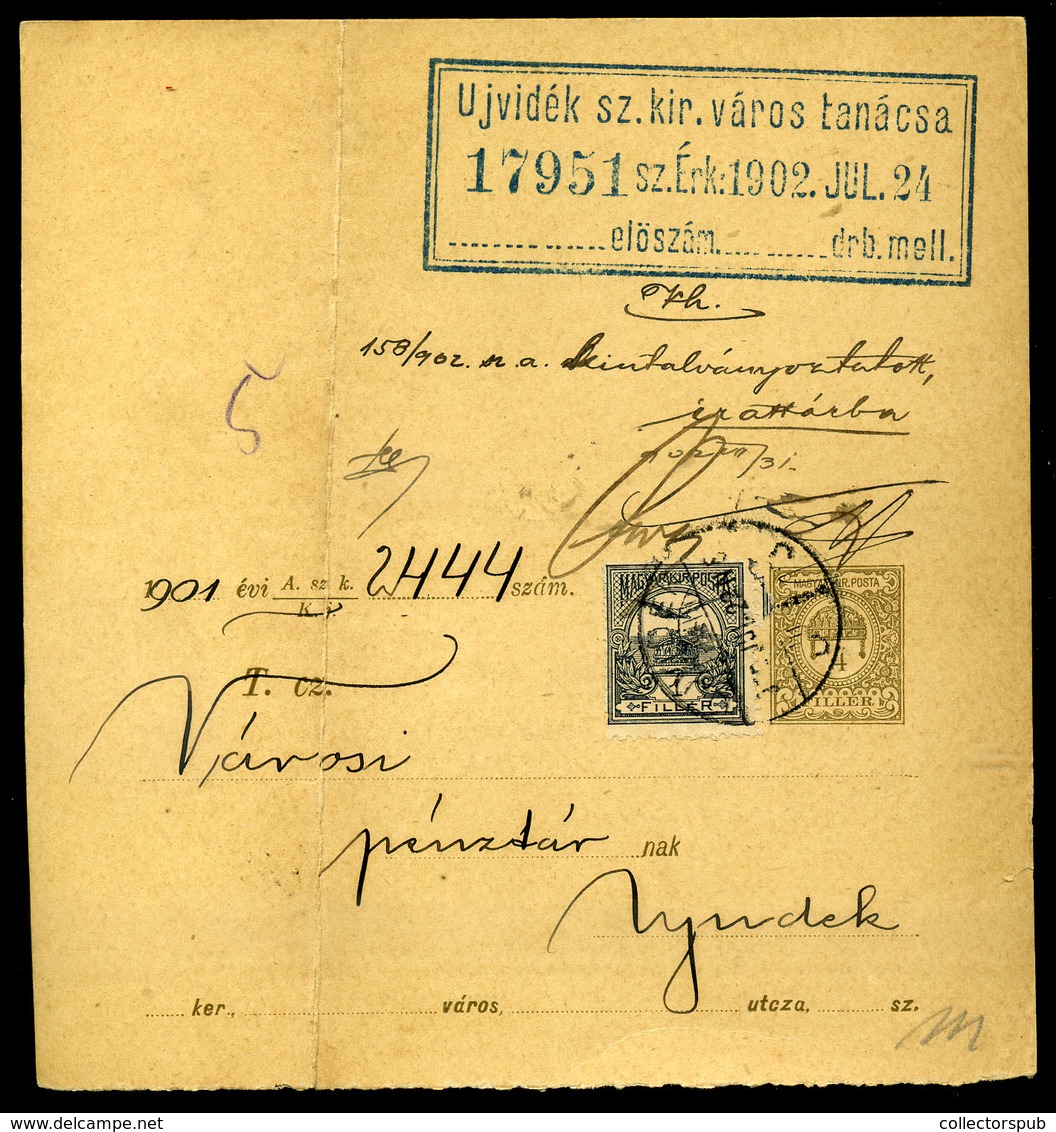 Ujvidék sz. kir. város tanácsa
17951 sz. Érk: 1902. JUL. 24
előszám. drb. mell.
158/902. n. a.
irattárba
5
1901 évi A. sz. k. 2444 szám.
K.
MAGYAR KIR. POSTA
1
FILLÉR
MAGYAR KIR. POSTA
4
FILLÉR
T. cz.
Városi
pénztár nak
Ujvidek
ker., város, utcza, sz.
collectorspub